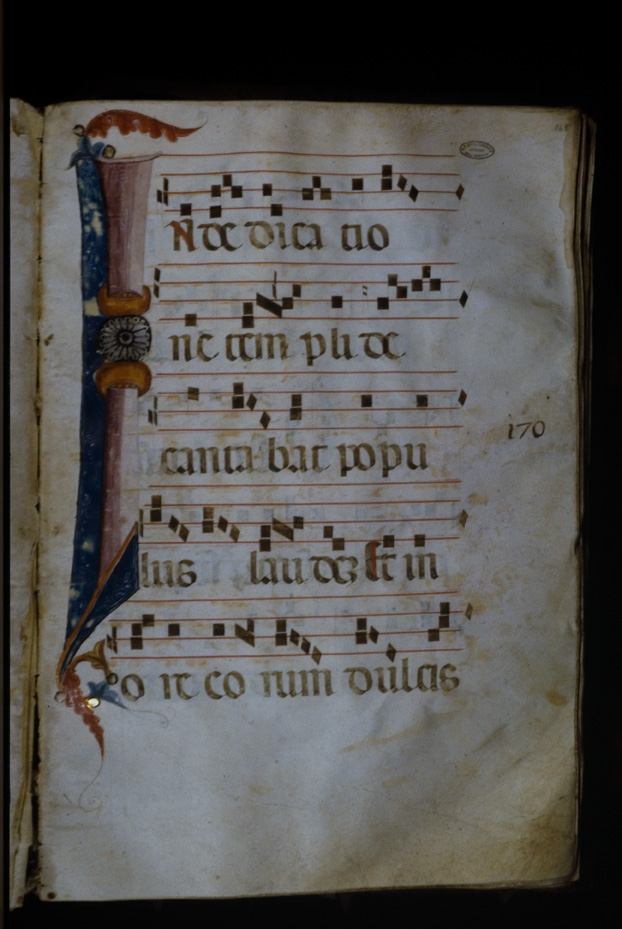 IN de dica tio
ne tem pli de
canta bat popu
170
lus laudez Et in
o re eo rum dulcis